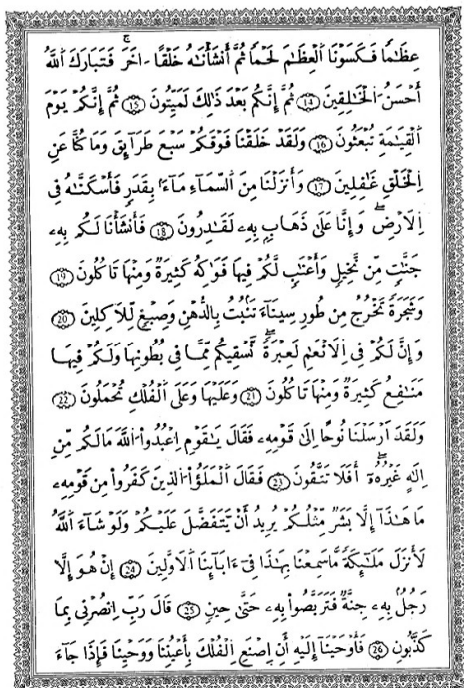 عِظَٰمًا فَكَسَوْنَا اَلْعِظَٰمَ لَحْمًا ثُمَّ أَنشَأْنَٰهُ خَلْقًا ـ اخَرَ فَتَبَارَكَ اَللَّهُ
أَحْسَنُ اُلْخَٰلِقِينَ 14 ثُمَّ إِنَّكُم بَعْدَ ذَٰلِكَ لَمَيِّتُونَ 15 ثُمَّ إِنَّكُمْ يَوْمَ
اَلْقِيَٰمَةِ تُبْعَثُونَ 16 وَلَقَدْ خَلَقْنَا فَوْقَكُمْ سَبْعَ طَرَآئِقَ وَمَا كُنَّا عَنِ
اِلْخَلْقِ غَٰفِلِينَ 17 وَأَنزَلْنَا مِنَ اَلسَّمَآءِ مَآءَۢ بِقَدَرٍ فَأَسْكَنَّٰهُ فِى
اِلَارْضِ وَإِنَّا عَلَىٰ ذَهَابِۭ بِهِۦ لَقَٰدِرُونَ 18 فَأَنشَأْنَا لَكُم بِهِۦ
جَنَّٰتٍ مِّن نَّخِيلٍ وَأَعْنَٰبٍ لَّكُمْ فِيهَا فَوَٰكِهُ كَثِيرَةٌ وَمِنْهَا تَاكُلُونَ 19
وَشَجَرَةً تَخْرُجُ مِن طُورِ سِينَآءَ تَنۢبُتُ بِالدُّهْنِ وَصِبْغٍ لِّلَاكِلِينَ 20
وَإِنَّ لَكُمْ فِى اِلَانْعَٰمِ لَعِبْرَةً نَّسْقِيكُم مِّمَّا فِى بُطُونِهَا وَلَكُمْ فِيهَا
مَنَٰفِعُ كَثِيرَةٌ وَمِنْهَا تَاكُلُونَ 21 وَعَلَيْهَا وَعَلَى اَلْفُلْكِ تُحْمَلُونَ 22
وَلَقَدَ اَرْسَلْنَا نُوحًا اِلَىٰ قَوْمِهِۦ فَقَالَ يَٰقَوْمِ اِعْبُدُواْ اُللَّهَ مَا لَكُم مِّنِ
اِلَٰهٍ غَيْرُهُۥ أَفَلَا تَتَّقُونَ 23 فَقَالَ اَلْمَلَؤُاْ اُلذِينَ كَفَرُواْ مِن قَوْمِهِۦ
مَا هَٰذَا إِلَّا بَشَرٌ مِّثْلُكُمْ يُرِيدُ أَنْ يَّتَفَضَّلَ عَلَيْكُمْ وَلَوْ شَآءَ اَللَّهُ
لَأَنزَلَ مَلَٰٓئِكَةً مَّا سَمِعْنَا بِهَٰذَا فِىٓ ءَابَآئِنَا اَلَاوَّلِينَ 24 إِنْ هُوَ إِلَّا
رَجُلُۢ بِهِۦ جِنَّةٌ فَتَرَبَّصُواْ بِهِۦ حَتَّىٰ حِينٍ 25 قَالَ رَبِّ اِنصُرْنِى بِمَا
كَذَّبُونِ 26 فَأَوْحَيْنَآ إِلَيْهِ أَنِ اِصْنَعِ اِلْفُلْكَ بِأَعْيُنِنَا وَوَحْيِنَا فَإِذَا جَآءَ